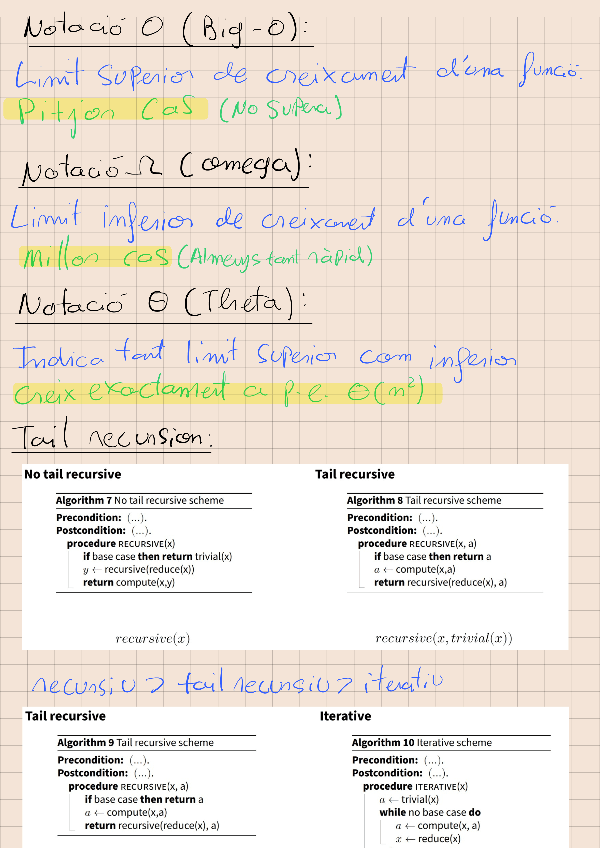 Notació O (Big-O):
Limit superior de creixament d'una funció.
Pitjor cas (No supera)
Notació Ω (omega):
Limit inferior de creixament d'una funció.
Millor cas (Almenys tant ràpid)
Notació Θ (Theta):
Indica tant limit superior com inferior
Creix exactament a p.e. Θ(n²)
Tail recursion:
No tail recursive
Algorithm 7 No tail recursive scheme
Precondition: (...).
Postcondition: (...).
procedure RECURSIVE(x)
if base case then return trivial(x)
y ← recursive(reduce(x))
return compute(x,y)
recursive(x)
Tail recursive
Algorithm 8 Tail recursive scheme
Precondition: (...).
Postcondition: (...).
procedure RECURSIVE(x, a)
if base case then return a
a ← compute(x,a)
return recursive(reduce(x), a)
recursive(x, trivial(x))
recursiu > tail recursiu > iteratiu
Tail recursive
Algorithm 9 Tail recursive scheme
Precondition: (...).
Postcondition: (...).
procedure RECURSIVE(x, a)
if base case then return a
a ← compute(x,a)
return recursive(reduce(x), a)
Iterative
Algorithm 10 Iterative scheme
Precondition: (...).
Postcondition: (...).
procedure ITERATIVE(x)
a ← trivial(x)
while no base case do
a ← compute(x, a)
x ← reduce(x)